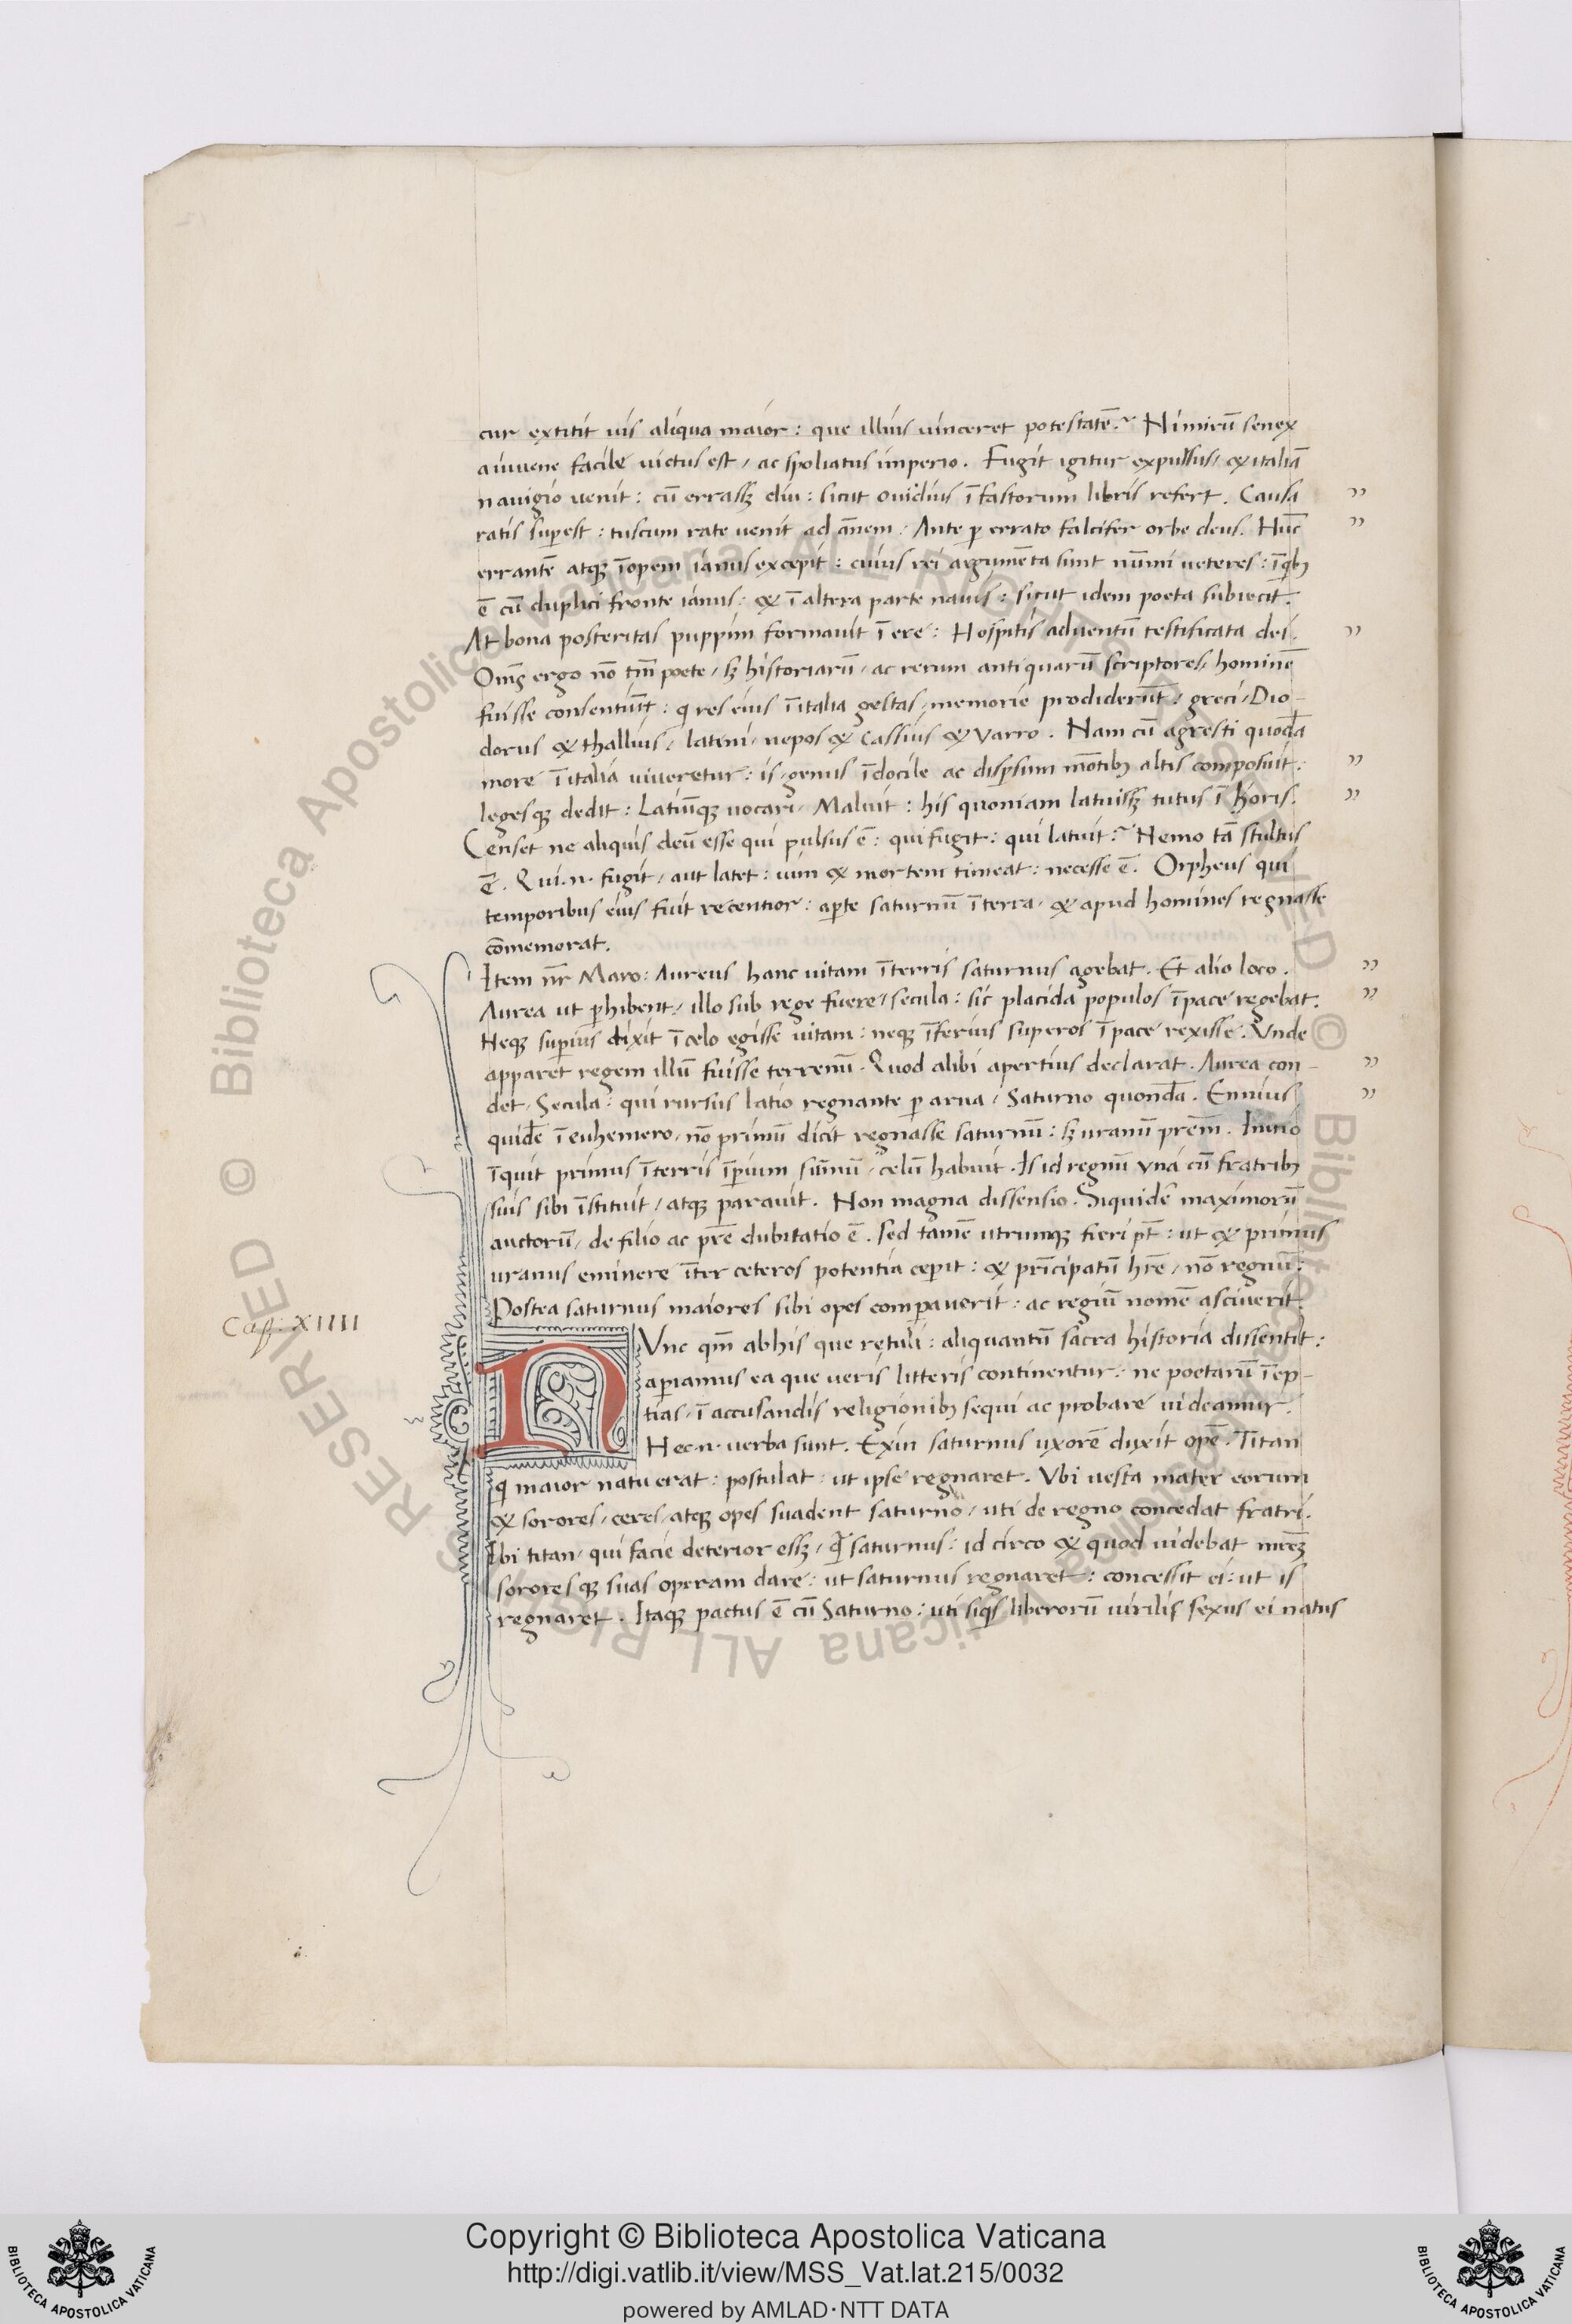 cur extitit uis aliqua maior : que illius uinceret potestatē? Nimirū senex
a iuvene facile victus est / ac spoliatus imperio. Fugit igitur expulsus / & italiā
nauigio uenit : cū errassꝫ diu : sicut ouidius ī fastorum libris refert. Causa
ratis suꝑest : tuscum rate uenit ad ānem / Ante ꝑ errato falcifer orbe deus. Hūc
errantē atqꝫ īopem ianus excepit : cuius rei argumēta sunt nūmi ueteres : ī qibꝫ
ē cū duplici fronte ianus : & ī altera parte nauis : sicut idem poeta subiecit.
At bona posteritas puppim formauit ī ere : Hospitis aduentū testificata dei.
Om̄s ergo nō tm̄ poete / sꝫ historiarū / ac rerum antiquarū scriptores / hominē
fuisse consentiūt : q res eius ī italia gestas / memorie prodiderūt / greci / Dio-
dorus & thallius / latini / nepos & Cassius & Varro. Nam cū agresti quodā
more ī italia uiueretur : is / genus īdocile ac dispsum mōtibꝫ altis composuit :
leges qꝫ dedit : Latiūqꝫ uocari / Maluit : his quoniam latuissꝫ tutus ī horis.
Censet ne aliquis deū esse qui pulsus ē : qui fugit : qui latuit? Nemo tā stultus
ē. Qui .n. fugit / aut latet : uim & mortem timeat : necesse ē. Orpheus qui
temporibus eius fuit recentior : aꝑte saturnū ī terra / & apud homines regnasse
cōmemorat.
Item nr̄ Maro : Aureus hanc uitam ī terris saturnus agebat. Et alio loco.
Aurea ut ꝑhibent / illo sub rege fuere / secula : sic placida populos ī pace regebat.
Neqꝫ suꝑius dixit ī celo egisse uitam : neqꝫ īferius superos ī pace rexisse. Vnde
apparet regem illū fuisse terrenū. Quod alibi apertius declarat. Aurea con-
det / Secula : qui rursus latio regnante ꝑ arua / Saturno quondā. Ennius
quidē ī euhemero / nō primū dicit regnasse saturnū : sꝫ uranū prēm. Initio
īquit primus ī terris īꝑium sūmū / celū habuit. Is id regnū vnā cū fratribꝫ
suis sibi īstituit / atqꝫ parauit. Non magna dissensio. Siquidē maximorū
auctorū / de filio ac prē dubitatio ē. sed tamē utrumqꝫ fieri pt̄ : ut & primus
uranus eminere īter ceteros potentia ceperit : & prīcipatū hr̄e / nō regnū :
Postea saturnus maiores sibi opes comparauerit : ac regiū nomē asciuerit.
Capi. XIIII
NVnc qm̄ ab his que retuli : aliquantū sacra historia dissentit :
aꝑiamus ea que ueris litteris continentur : ne poetarū īep-
tias / ī accusandis religionibꝫ sequi ac probare uideamur.
Hec .n. uerba sunt. Exin saturnus uxorē duxit opē. Titan
qi maior natu erat : postulat : ut ipse regnaret. Vbi uesta mater eorum
& sorores / ceres / atqꝫ opes suadent saturno / uti de regno concedat fratri.
Ibi titan / qui facie deterior essꝫ / qͣ saturnus : id circo & quod uidebat mr̄eꝫ
sorores qꝫ suas operam dare : ut saturnus regnaret : concessit ei : ut is
regnaret. Itaqꝫ pactus ē cū Saturno : uti siqs liberorū uirilis sexus ei natus
Copyright © Biblioteca Apostolica Vaticana
http://digi.vatlib.it/view/MSS_Vat.lat.215/0032
powered by AMLAD·NTT DATA
BIBLIOTECA APOSTOLICA VATICANA
BIBLIOTECA APOSTOLICA VATICANA